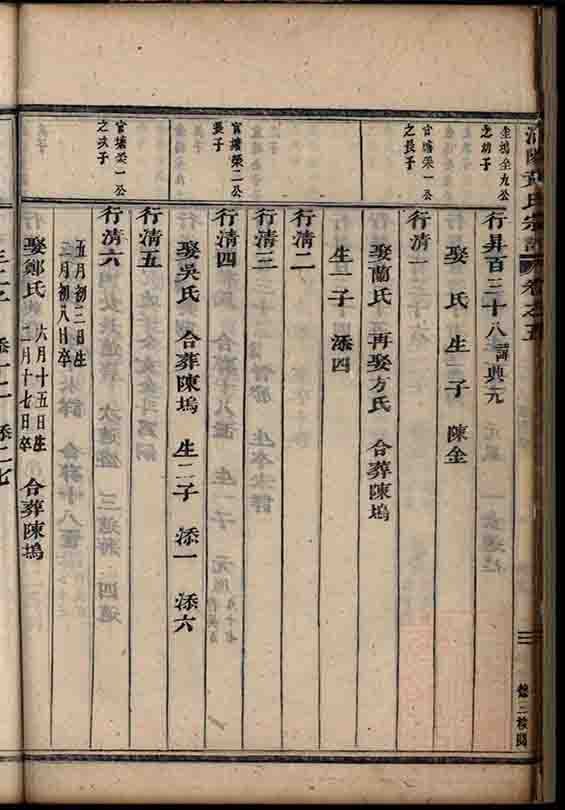 氏宗譜 卷之五
圭塢全九公
之幼子
行昇百三十八 諱典元
娶 氏 生一子 陳金
官塘榮一公
之長子
行淯一
娶蘭氏 再娶方氏 合葬陳塢
生一子 添四
行淯二
行淯三
官塘榮二公
長子
行淯四
娶吳氏 合葬陳塢 生二子 添一 添六
行淯五
官塘榮一公
之次子
行淯六
五月初三日生
三月初八日卒
娶鄭氏
六月十五日生
二月十七日卒
合葬陳塢